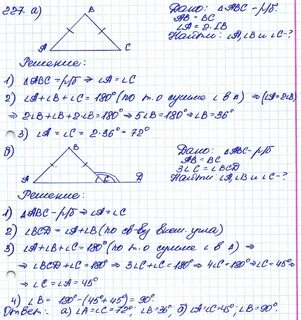 227. а)
Дано: △ABC – р/б
AB = BC
∠A = 2·∠B
Найти: ∠A, ∠B и ∠C-?
B
A
C
Решение:
1) △ABC – р/б ⇒ ∠A = ∠C
2) ∠A + ∠B + ∠C = 180° (по т. о сумме ∠ в △) ⇒ (∠A = 2∠B)
⇒ 2∠B + ∠B + 2∠B = 180° ⇒ 5∠B = 180° ⇒ ∠B = 36°
3) ∠A = ∠C = 2·36° = 72°
б)
Дано: △ABC – р/б
AB = BC
3∠C = ∠BCD
Найти: ∠A, ∠B и ∠C-?
B
A
C
D
Решение:
1) △ABC – р/б ⇒ ∠A = ∠C
2) ∠BCD = ∠A + ∠B (по св-ву внеш. угла)
3) ∠A + ∠B + ∠C = 180° (по т. о сумме ∠ в △) ⇒
⇒ ∠BCD + ∠C = 180° ⇒ 3∠C + ∠C = 180° ⇒ 4∠C = 180° ⇒ ∠C = 45° ⇒
⇒ ∠C = ∠A = 45°
4) ∠B = 180° - (45° + 45°) = 90°
Ответ: а) ∠A = ∠C = 72°, ∠B = 36° б) ∠A = ∠C = 45°, ∠B = 90°.